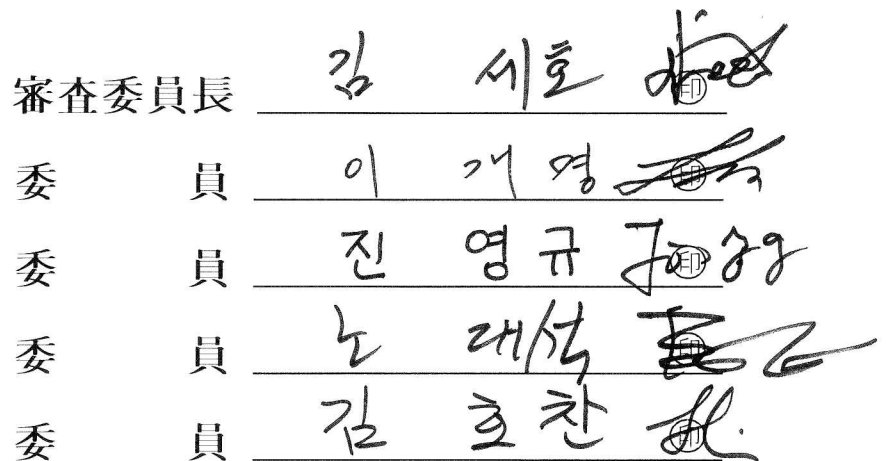 審査委員長 김 세호 印
委員 이 개명 印
委員 진 영규 印
委員 노 대석 印
委員 김 호찬 印